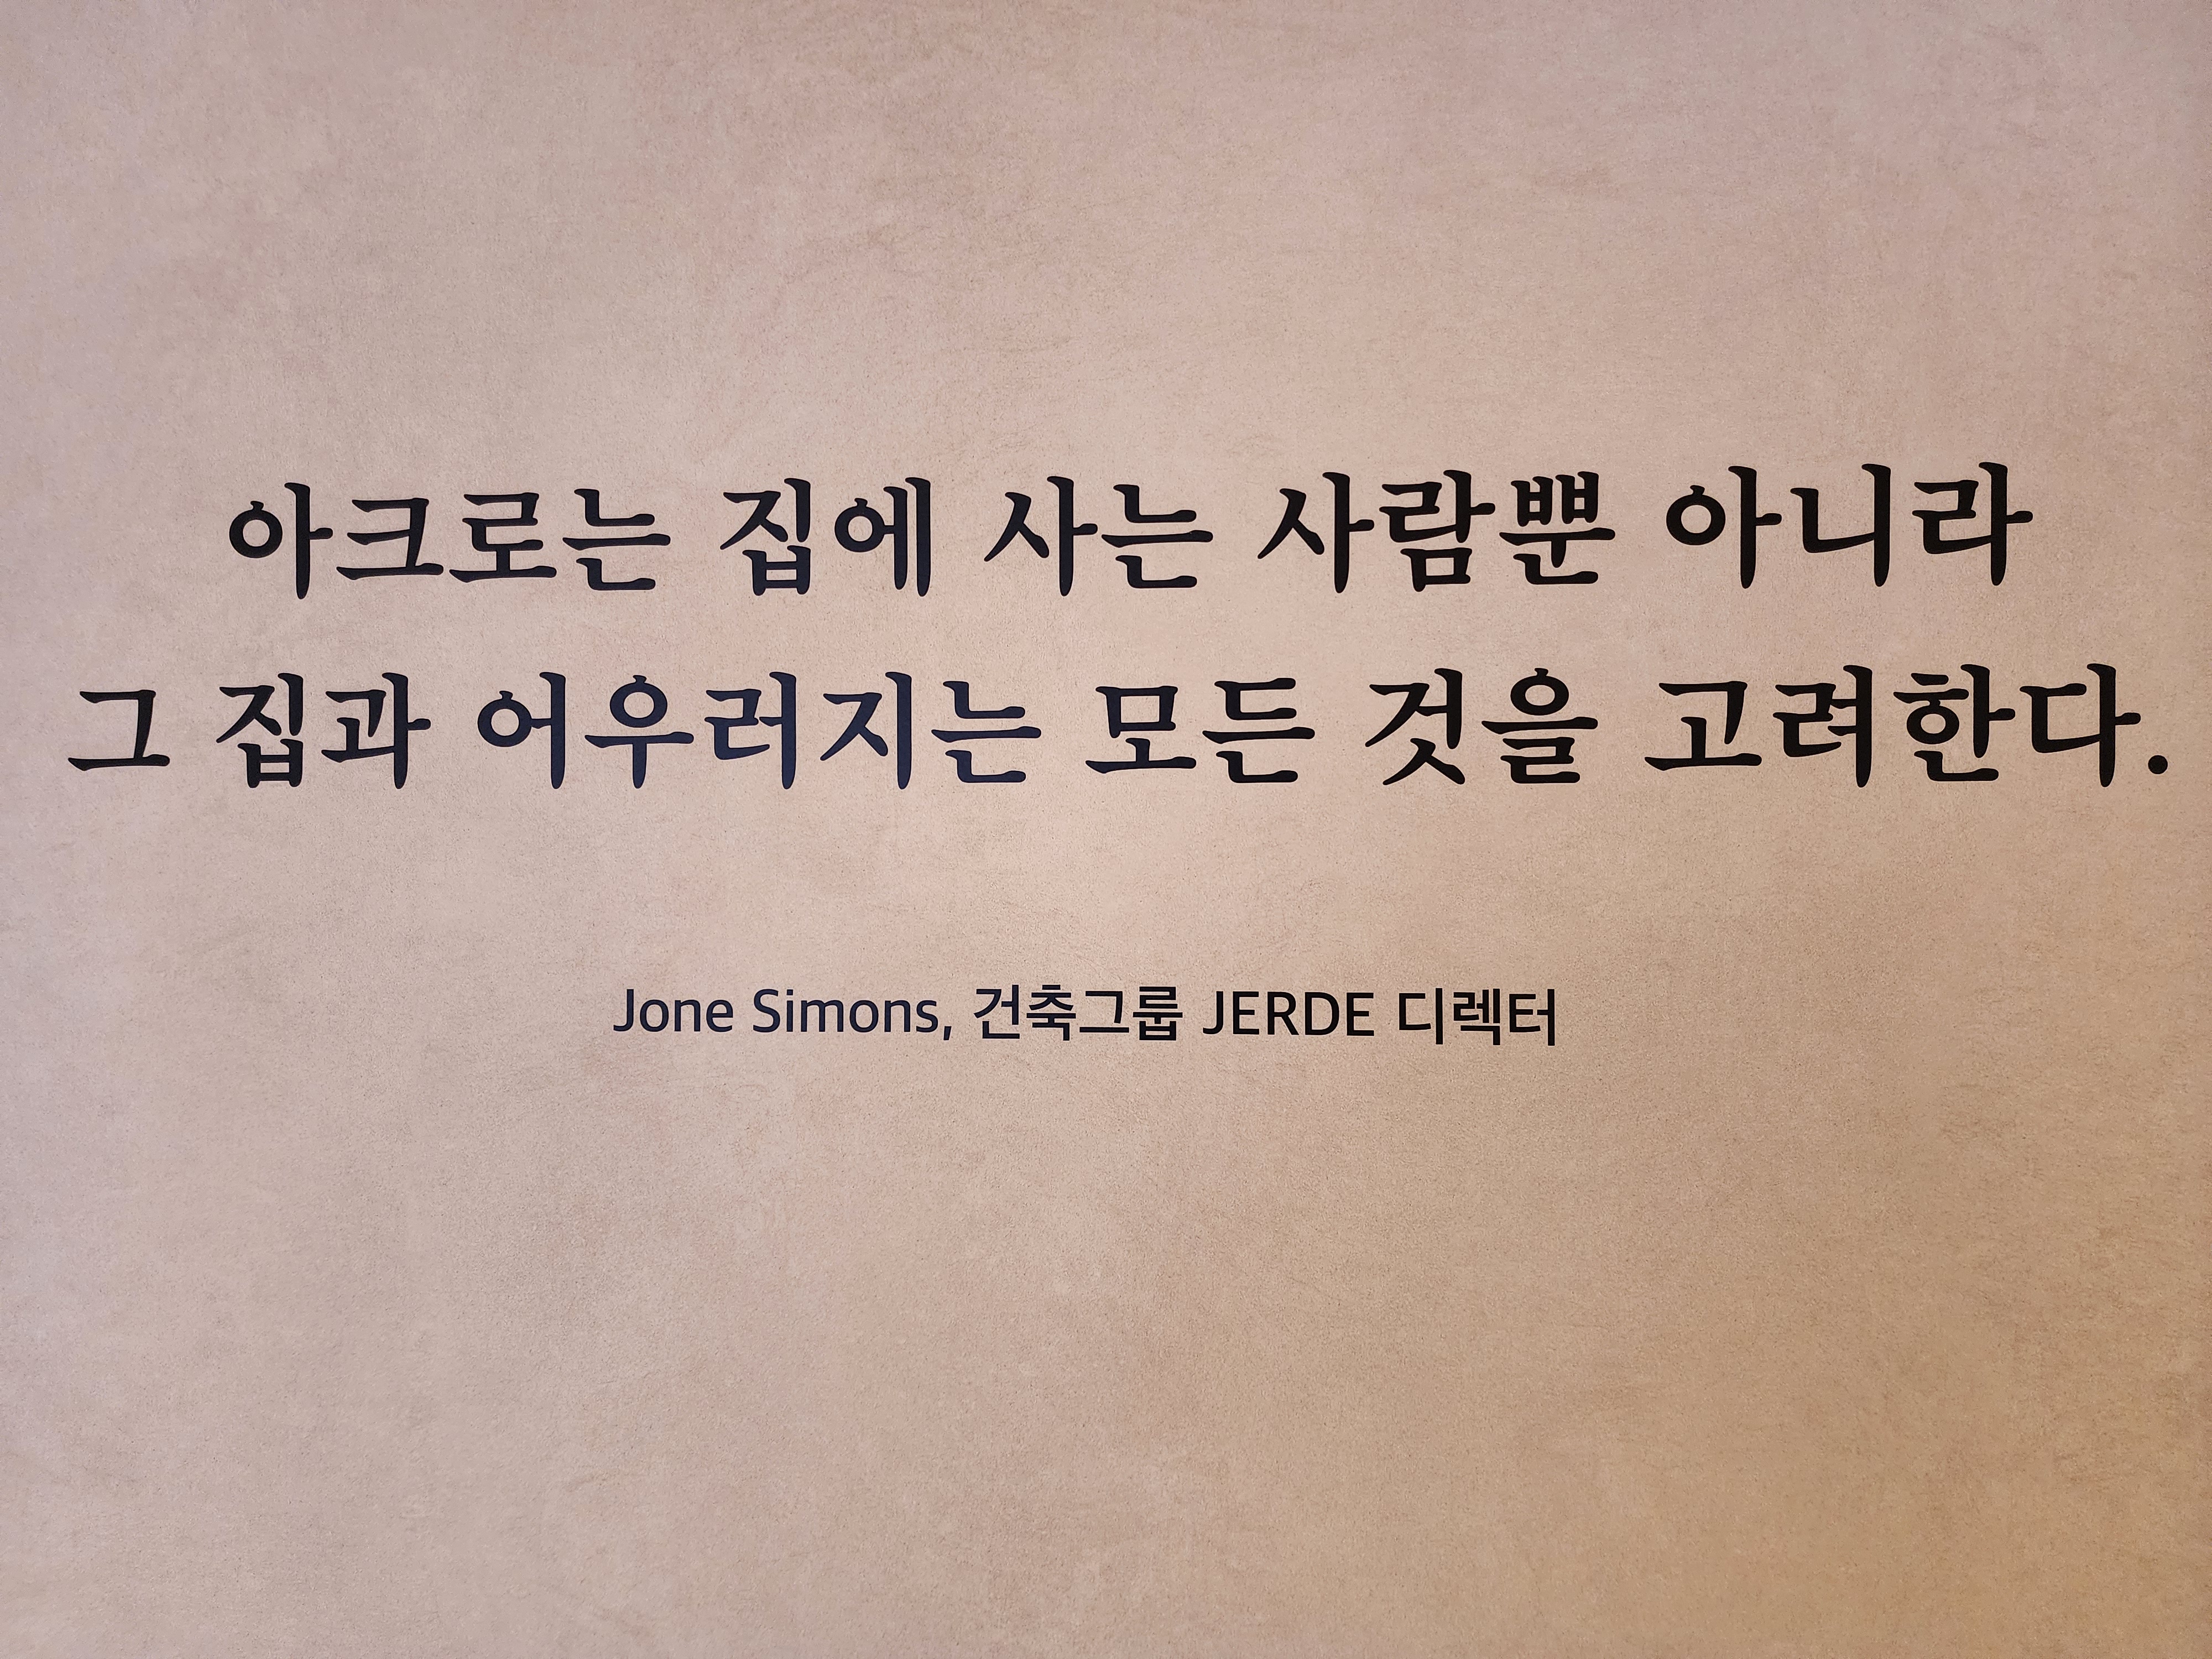 아크로는 집에 사는 사람뿐 아니라
그 집과 어우러지는 모든 것을 고려한다.
Jone Simons, 건축그룹 JERDE 디렉터